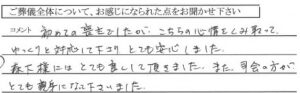 ご葬儀全体について、お感じになられた点をお聞かせ下さい
コメント 初めての喪主でしたが、こちらの心情をくみ取って
ゆっくりと対応して下さり とても安心しました。
森下様には とても良くして頂きました。また、司会の方が
とても親身になって下さいました。